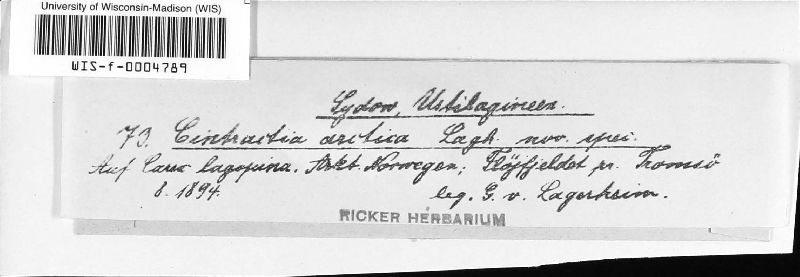 University of Wisconsin-Madison (WIS)
WIS-f-0004789
Sydow, Ustilagineen.
73. Cintractia arctica Lagh. nov. spec.
Auf Carex lagopina. Arkt. Norwegen; Flöjfjeldet pr. Tromsö
8. 1894. leg. G. v. Lagerheim.
RICKER HERBARIUM